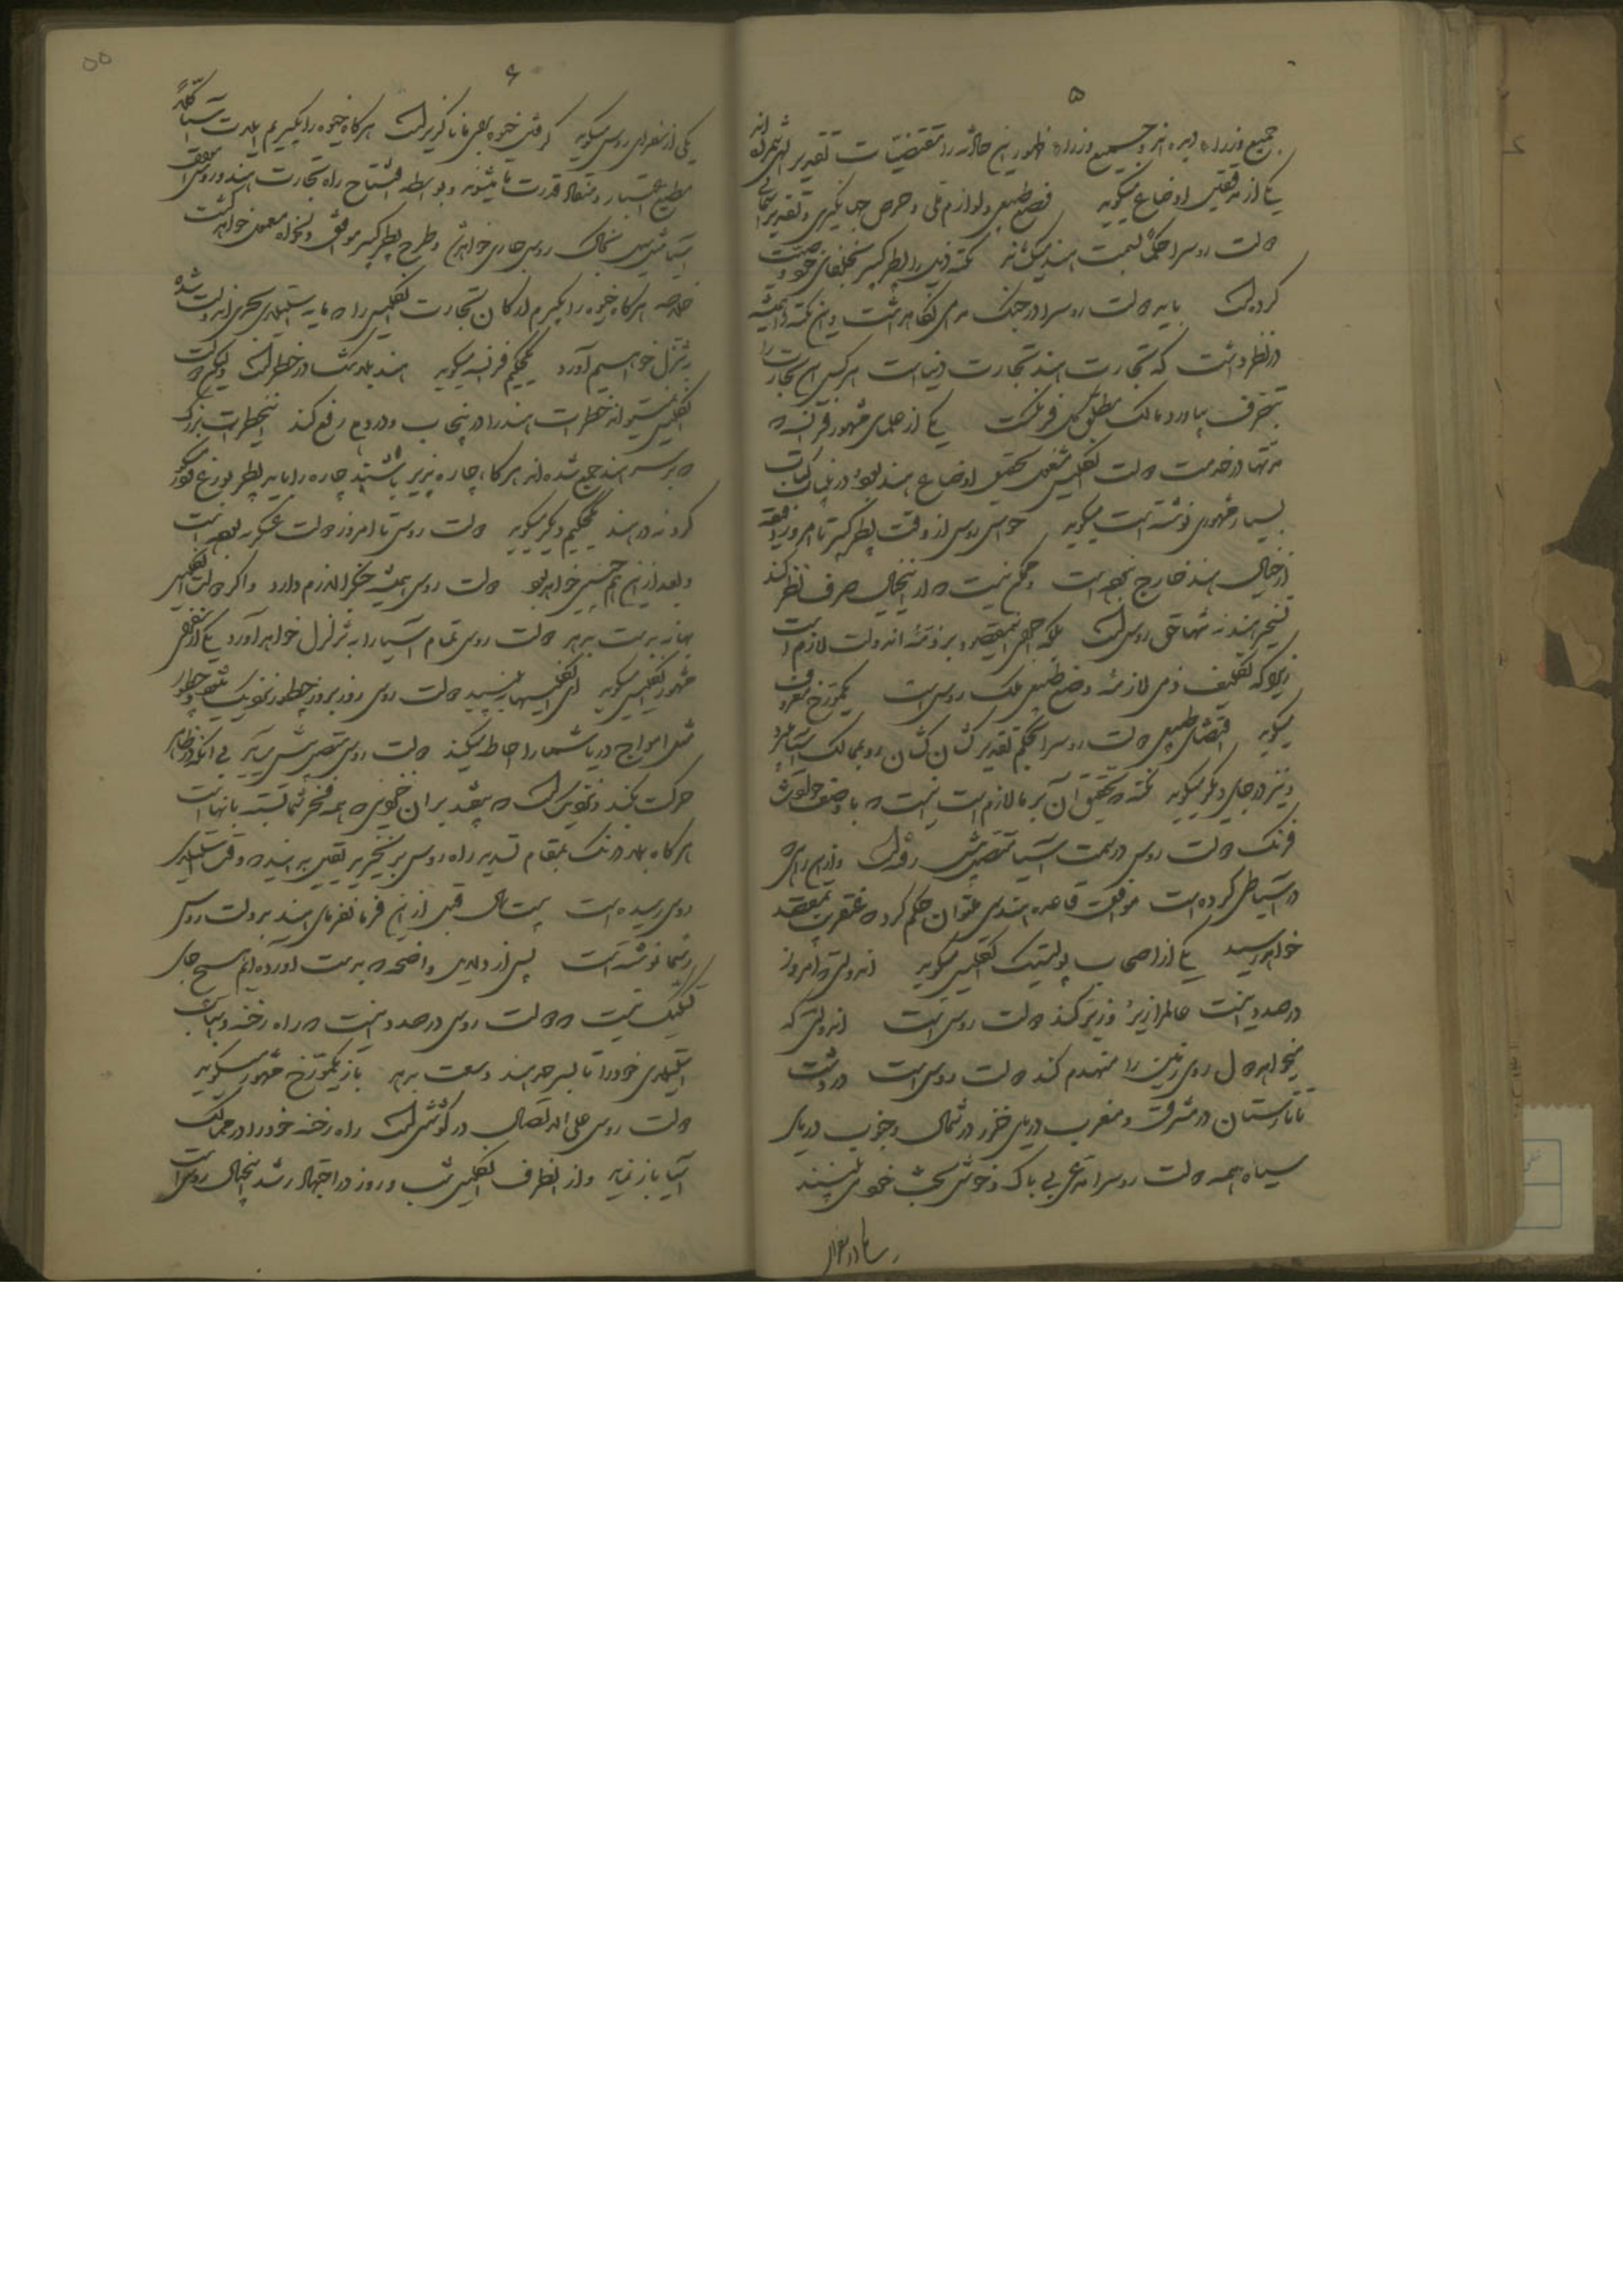 ۵
جمیع وزراء دیده اند و جمیع وزراء ظهور این حادثه را از مقتضیات تقدیر الهی شمرده اند
یکی از مدققین اوضاع میگوید وضع طبیعی و لوازم ملی و حرص جهانگیری و تقدیر آسمانی
دولت روس را حکماً بسمت هند میکشاند نکته ذیل را پطر کبیر بخلفای خود وصیت
کرده است باید دولت روس را در جنگ دایمی نگاه داشت و این نکته را همیشه
در نظر داشت که تجارت هند تجارت دنیاست هر کس این تجارت را
بتصرف بیاورد مالک مطلق کل فرنگ است یکی از علمای مشهور فرانسه که
مدتها در خدمت دولت انگلیس مشغول تحقیق اوضاع هند بوده در یک کتاب
بسیار مشهوری نوشته است میگوید حواس روس از وقت پطر کبیر تا امروز دقیقه
از خیال هند خارج نبوده است و ممکن نیست که از این خیال صرف نظر کند
تسخیر هند نه تنها حق روس است بلکه حصول این مقصود بر ذمه آن دولت لازم است
زیرا که تکلیف ذمی لازمه وضع طبیعی ملک روس است یکمورخ معروف
میگوید اقتضای طبیعی دولت روس را بحکم تقدیر کشان کشان رو بممالک آسیا میبرد
و نیز در جای دیگر میگوید نکته که تحقیق آن بر ما لازم است اینست که با وصف حوادث
فرنگ دولت روس در سمت آسیا متصل پیش رفته است و از این راهی که
در آسیا طی کرده است موافق قاعده هندسی میتوان حکم کرد که عنقریب بمقصد
خواهد رسید یکی از اصحاب پولتیک انگلیس میگوید آن دولتی که امروز
در صدد اینست عالم را زیر و زبر کند دولت روس است آن دولتی که
میخواهد دول روی زمین را منهدم کند دولت روس است در دشت
تاتارستان در مشرق و مغرب دریای خزر در شمال و جنوب دریای
سیاه همه دولت روس را مدعی بی باک و خوش بخت خود می بینند
۶
یکی از سفرای روس میگوید گرفتن خیوه بهر مانا گزیر است هر گاه خیوه را بگیریم ایلات آسیا کلاً
مطیع اعتبار و منقاد قدرت ما میشوند و بواسطه افتتاح راه تجارت هند و روس
آسیا مثل سیل بخاک روس جاری خواهد شد و طرح پطر کبیر موافق دلخواه معمول خواهد گشت
خلاصه هر گاه خیوه را بگیریم ارکان تجارت انگلیس را که مایه استیلای بحری آن دولت شده
بتزلزل خواهیم آورد یکحکیم فرانسه میگوید هند بلاشک در خطر است و لیکن دولت
انگلیس نمیتواند خطرات هند را در پنجاب و لاهور رفع کند این خطرات بزرگ
که بر سر هند جمع شده اند هر گاه چاره پذیر باشند چاره را باید در پطربورغ و مسکو
کرد نه در هند یکحکیم دیگر میگوید دولت روس تا امروز دولت عسکریه بوده است
و بعد از این هم چنین خواهد بود دولت روس همیشه جنگ لازم دارد و اگر دولت انگلیس
بهانه بدست بدهد دولت روس تمام آسیا را به تزلزل خواهد آورد یکی از مصنفین
مشهور انگلیس میگوید ای انگلیسها ببینید دولت روس روز بروز چطور نزدیک میشود چطور
مثل امواج دریا شما را احاطه میکند دولت روس متصل پیش می آید بی آنکه در ظاهر
حرکت بکند و نزدیک است که بیفتد بر آن نقطه که همه فخر شما بسته بآنهاست
هر گاه بهار درنگ بمقام تدبیر راه روس بر نخیزید یقین بدانید که وقت استیلای
روس رسیده است بیست سال قبل از این فرمانفرمای هند بدولت روس
رسماً نوشته است پس از دلایل واضحه که بدست آورده ایم هیچ جای
شکی نیست که دولت روس در صدد اینست که راه رخنه و اسباب
استیلای خود را تا بسرحد هند وسعت بدهد باز یکمورخ مشهور میگوید
دولت روس علی الاتصال در کوشش است راه رخنه خود را در ممالک
آسیا باز نماید و از انطرف انگلیس شب و روز در اجتهاد رشد این خیال روس است